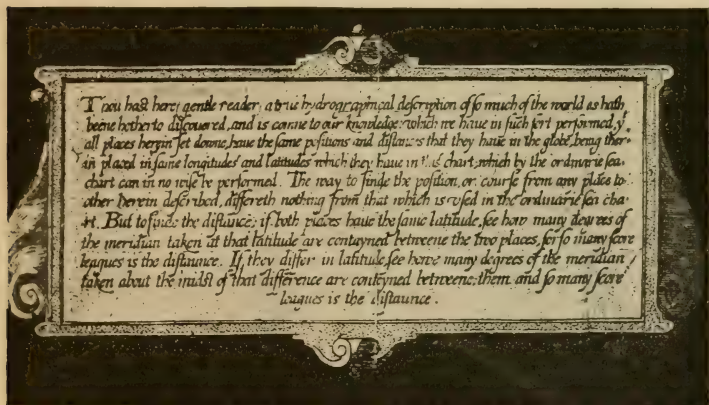 Thou hast here, gentle reader, a true hydrographical description of so much of the world as hath
beene hetherto discouered, and is comme to our knowledge: which we haue in such sort performed, yͭ
all places herein set downe, haue the same positions and distances that they haue in the globe, being ther-
in placed in same longitudes and latitudes which they haue in this chart, which by the ordinarie sea
chart can in no wise be performed. The way to finde the position, or course from any place to
other herein described, differeth nothing from that which is vsed in the ordinarie sea cha-
rt. But to finde the distance; if both places haue the same latitude, see how many degrees of
the meridian taken at that latitude are contayned betweene the two places, for so many score
leagues is the distance. If they differ in latitude, see howe many degrees of the meridian
taken about the midst of that difference are conteyned betweene them and so many score
leagues is the distaunce.